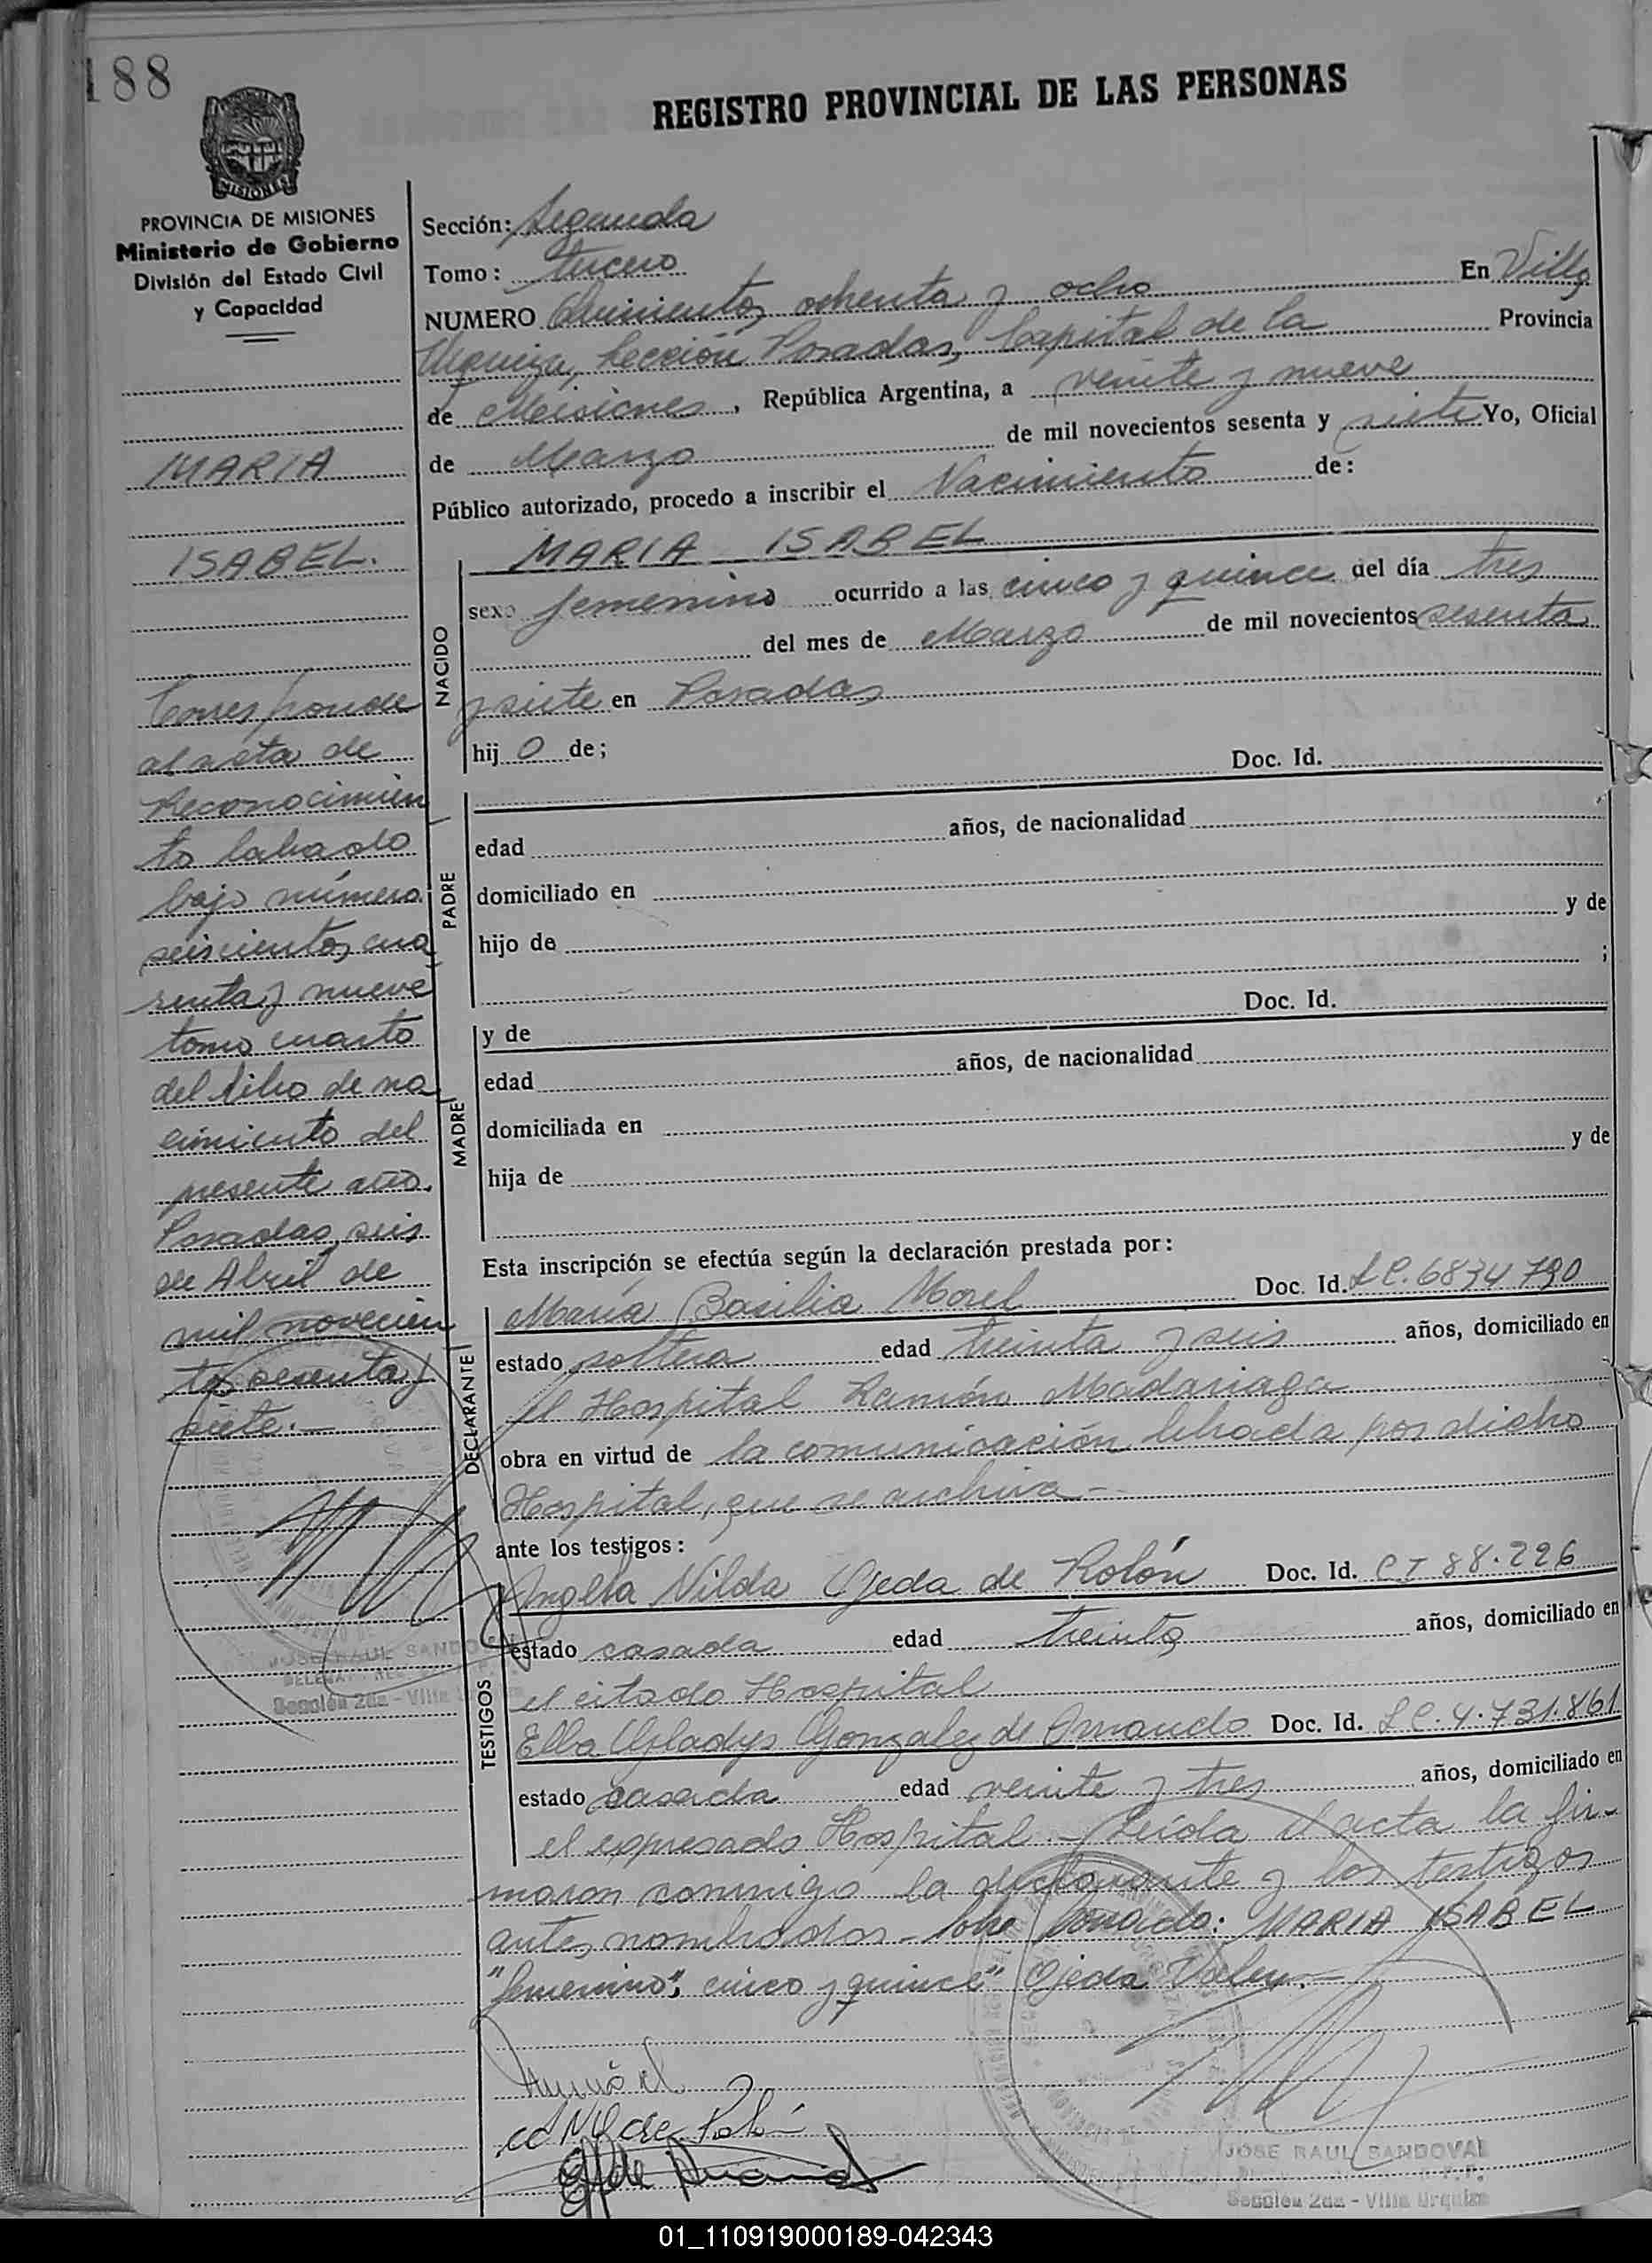 188
REGISTRO PROVINCIAL DE LAS PERSONAS
MISIONES
PROVINCIA DE MISIONES
Ministerio de Gobierno
División del Estado Civil
y Capacidad
MARIA
ISABEL.
Corresponde
al acta de
Reconocimien
to labado
bajo número
seiscientos cua
renta y nueve
tomo cuarto
del libro de na
cimiento del
presente año.
Posadas, seis
de Abril de
mil novecien
tos sesenta y
siete.-
JOSE RAUL SANDOVAL
Sección 2da - Villa
Sección: Segunda
Tomo: tercero
NUMERO Quinientos ochenta y ocho En Villa
Urquiza, Sección Posadas, Capital de la Provincia
de Misiones, República Argentina, a veinte y nueve
de Marzo de mil novecientos sesenta y siete Yo, Oficial
Público autorizado, procedo a inscribir el Nacimiento de:
NACIDO
MARIA ISABEL
sexo femenino ocurrido a las cinco y quince del día tres
del mes de Marzo de mil novecientos sesenta
y siete en Posadas
hij o de;
PADRE
Doc. Id.
edad años, de nacionalidad
domiciliado en
hijo de y de
;
MADRE
y de Doc. Id.
edad años, de nacionalidad
domiciliada en
hija de y de
Esta inscripción se efectúa según la declaración prestada por:
DECLARANTE
María Basilia Morel Doc. Id. LC. 6834790
estado soltera edad treinta y seis años, domiciliado en
el Hospital Ramón Madariaga
obra en virtud de la comunicación librada por dicho
Hospital, que se archiva.-
ante los testigos:
TESTIGOS
Angela Nilda Ojeda de Rolón Doc. Id. CI 88.226
estado casada edad treinta años, domiciliado en
el citado Hospital
Elba Gladys Gonzalez de Doc. Id. LC. 4.731.861
estado casada edad veinte y tres años, domiciliado en
el expresado Hospital.- Leída el acta la fir-
maron conmigo la declarante y los testigos
antes nombrados.- Sobre borrado: MARIA ISABEL
"femenino", cinco y quince" Ojeda Valen.-
de Rolón
JOSE RAUL SANDOVAL
Sección 2da - Villa Urquiza
01_110919000189-042343